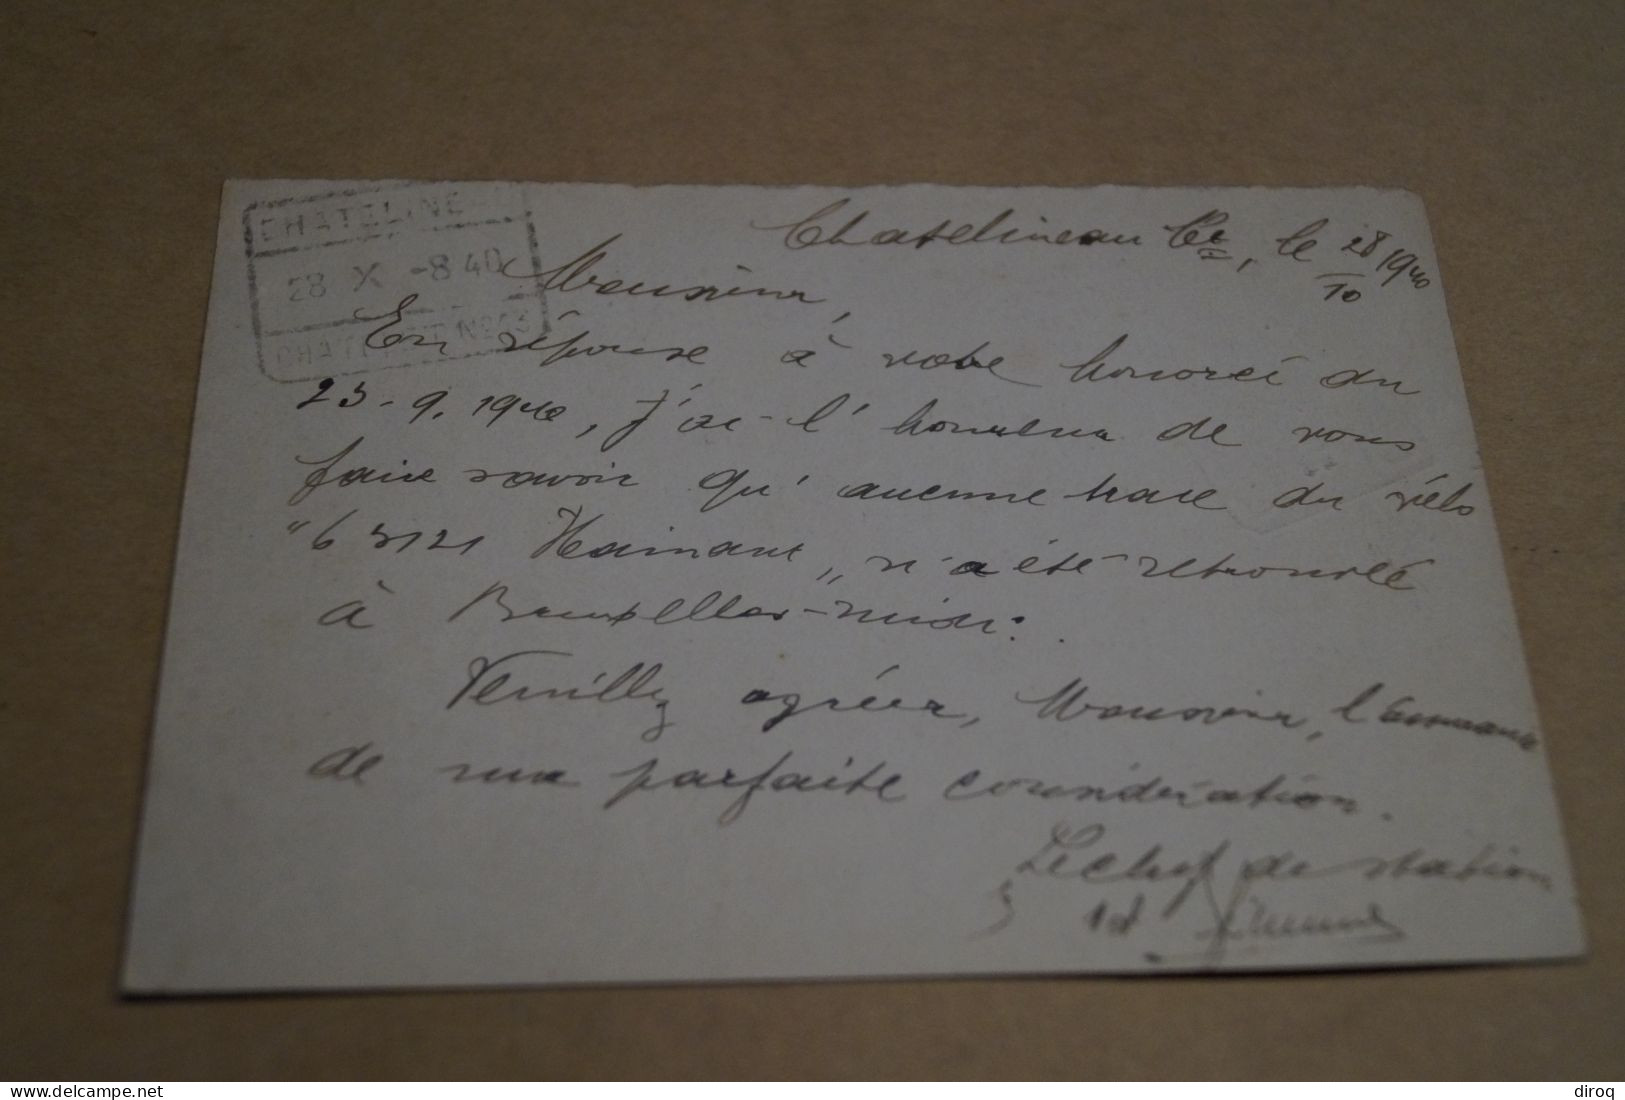 CHATELINE
28 X -8 40
CHATELET N°
Chatelineau Ce, le 28/10 1940
Monsieur,
En réponse à votre honorée du
23-9.1940, j'ai l'honneur de vous
faire savoir qu'aucune trace du vélo
"63121 Hainaut" n'a été retrouvée
à Bruxelles-midi.
Veuillz agréer, Monsieur, l'assurance
de ma parfaite considération.
Le chef de station
delcampe.net
diroq